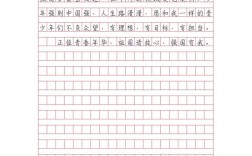 年强则中国强，人生路漫漫，愿和我一样的青
少年们不负众望，有理想，有目标，有担当。
正值青春年华，祖国请放心，强国有我。